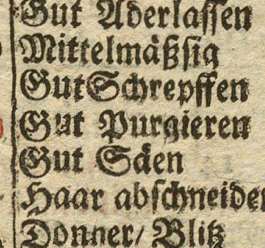 Gut Aderlassen
Mittelmäßsig
Gut Schrepffen
Gut Purgieren
Gut Säen
Haar abschneiden
Donner/ Blitz